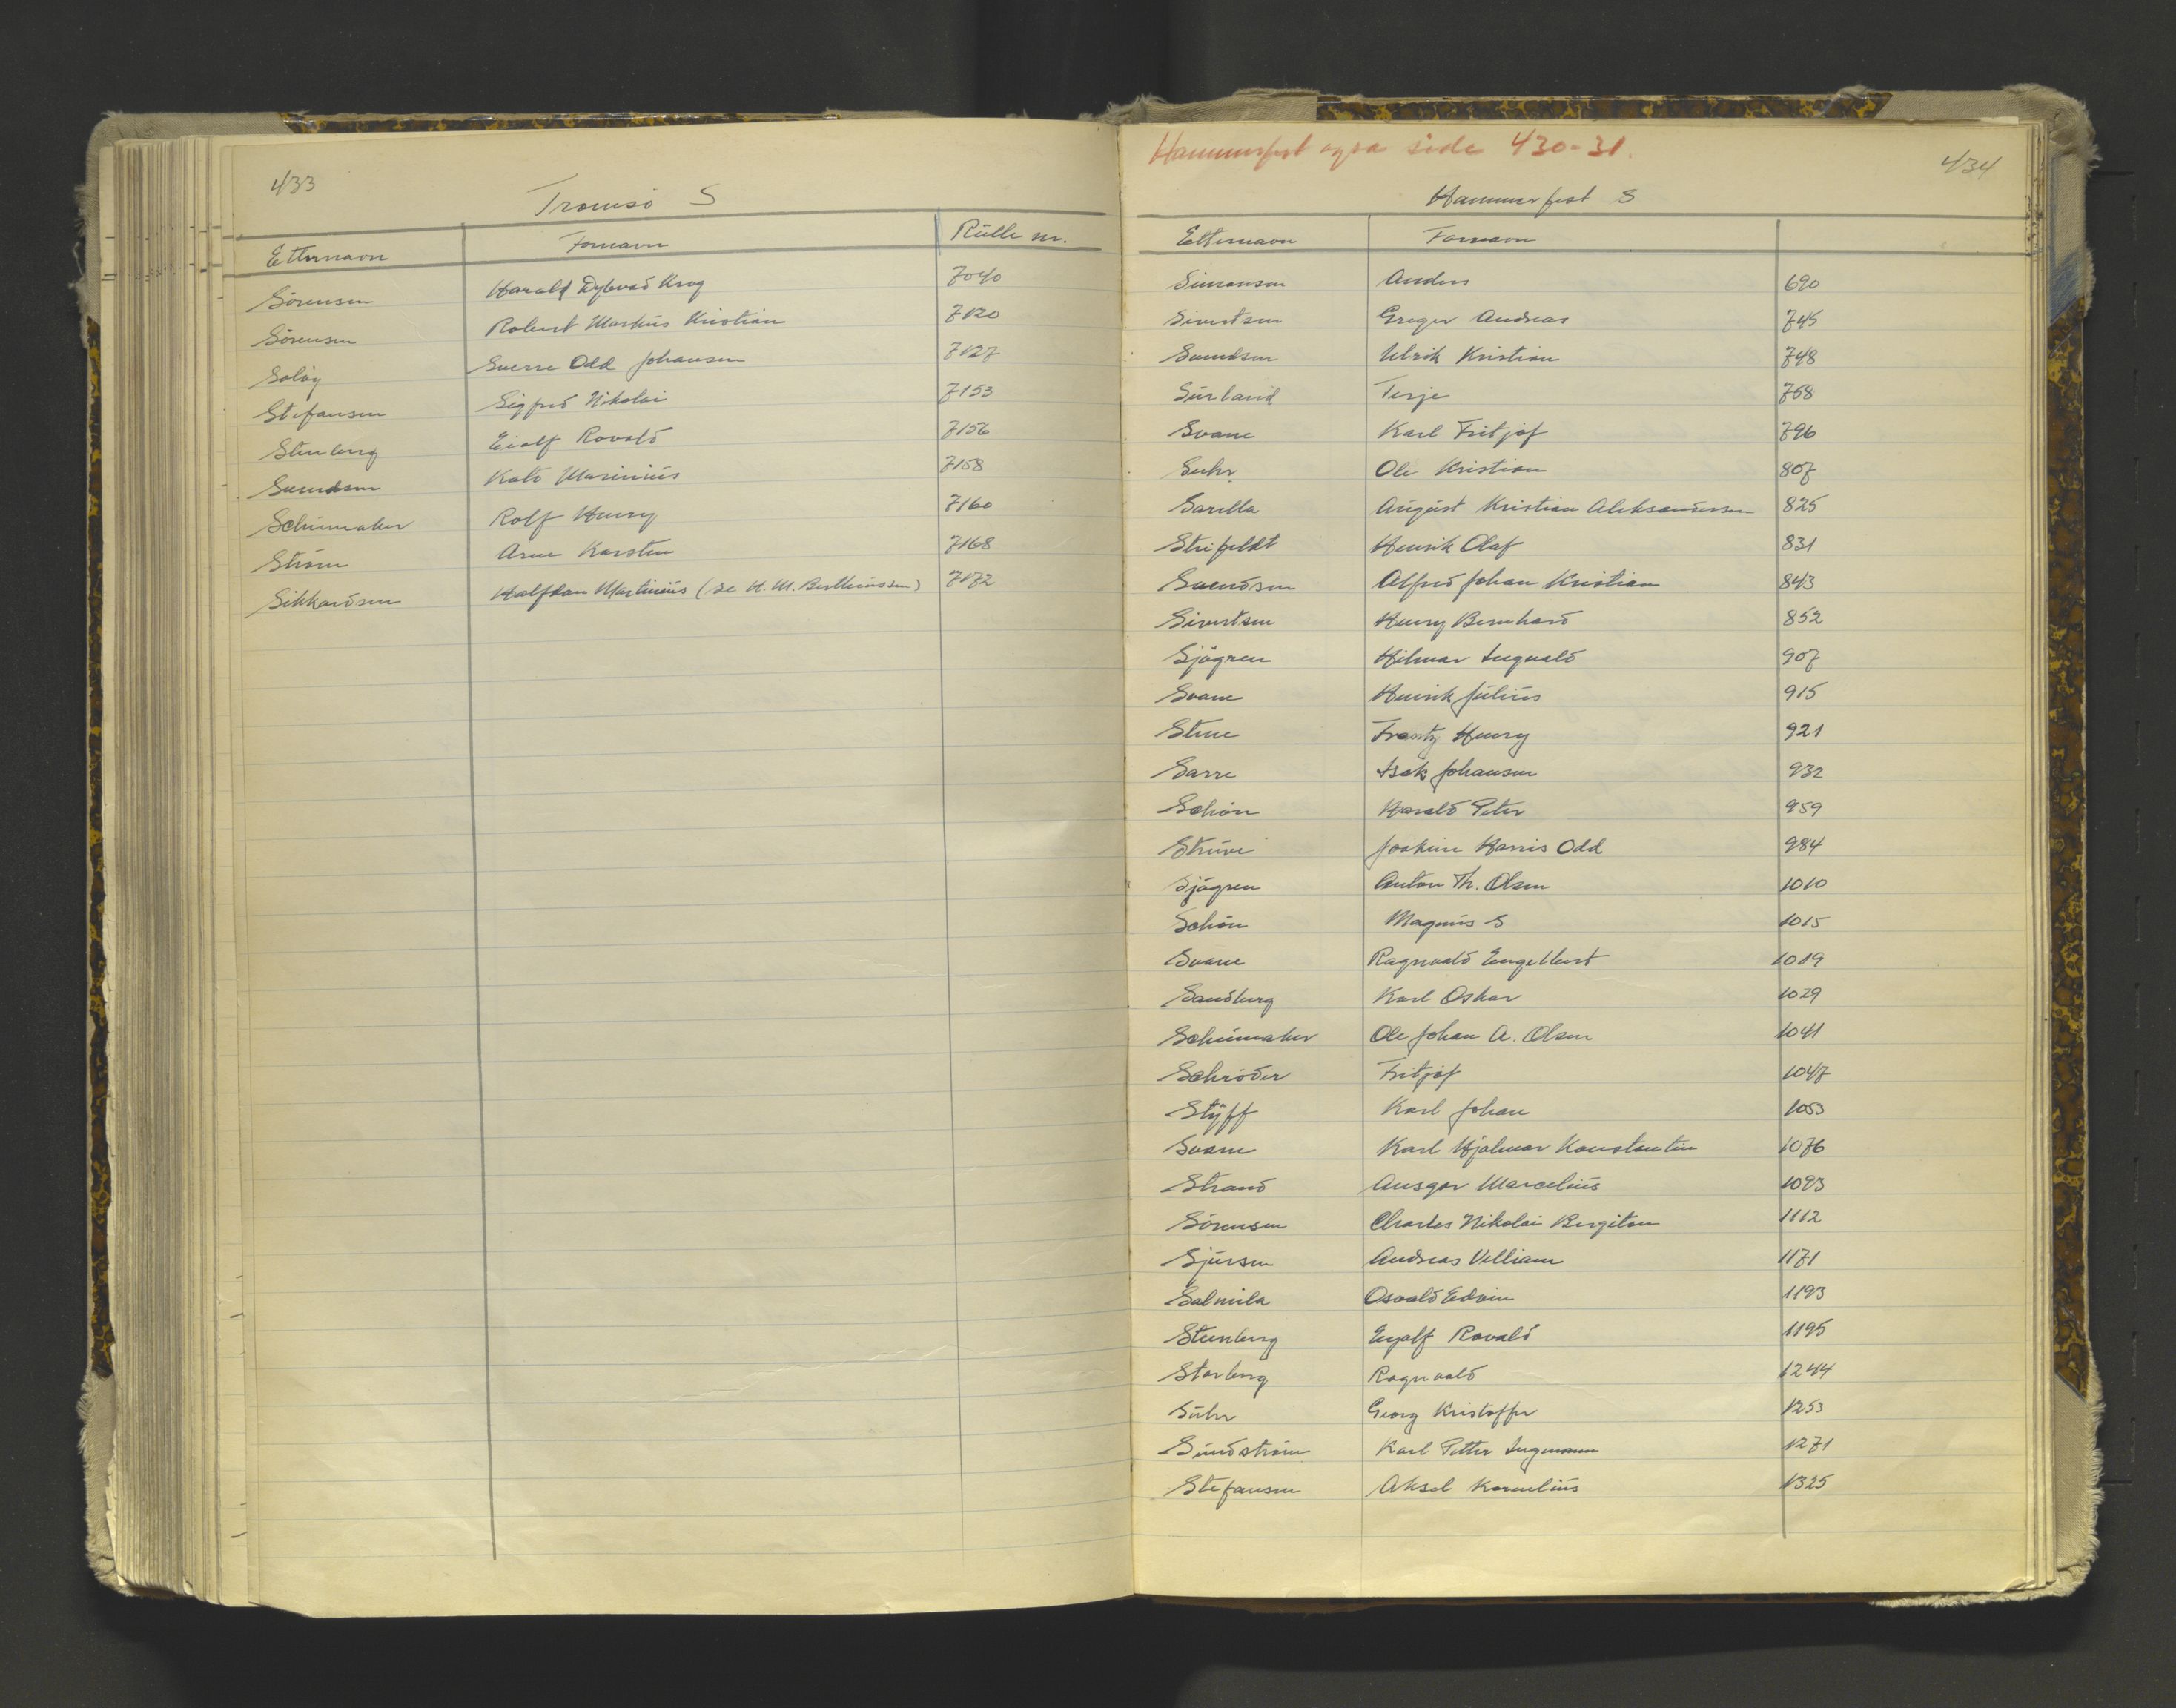 433
Tromsö S
Etternavn Fornavn Rulle nr.
Sörensen Harald Dybvad Krog 7040
Sörensen Robert Markus Kristian 7120
Solöy Sverre Odd Johansen 7127
Stefansen Sigfred Nikolai 7153
Stenberg Eialf Rovald 7156
Svendsen Kato Marinius 7158
Schumaker Rolf Henry 7160
Ström Arne Karsten 7168
Sikkardsen Halfdan Martinius (se H. M. Berthinussen) 7172
Hammerfest også side 430-31.
434
Hammerfest S
Etternavn Fornavn
Simonsen Anders 690
Sivertsen Greger Andreas 745
Svendsen Ulrik Kristian 748
Surland Terje 758
Svane Karl Fritjof 796
Suhr Ole Kristian 807
Sarilla August Kristian Aleksandersen 825
Strifeldt Henrik Olaf 831
Svendsen Alfred Johan Kristian 843
Sivertsen Henry Bernhard 852
Sjögren Hilmar Ingvald 907
Svane Henrik Julius 915
Stene Frantz Henry 921
Sarre Isak Johansen 932
Schön Harald Peter 959
Struve Joakim Harris Odd 984
Sjögren Anton Th. Olsen 1010
Schön Magnus S 1015
Svane Ragnvald Engelbert 1019
Sandberg Karl Oskar 1029
Schumaker Ole Johan A. Olsen 1041
Schröder Fritjof 1047
Styff Karl Johan 1053
Svane Karl Hjalmar Konstantin 1076
Strand Ansgar Marcelius 1093
Sörensen Charles Nikolai Bergiton 1112
Sjursen Andreas Villiam 1171
Salmila Osvald Edvin 1193
Steenberg Eyalf Rovald 1195
Storberg Ragnvald 1244
Suhr Georg Kristoffer 1253
Sundström Karl Petter Ingemann 1271
Stefansen Aksel Kornelius 1325